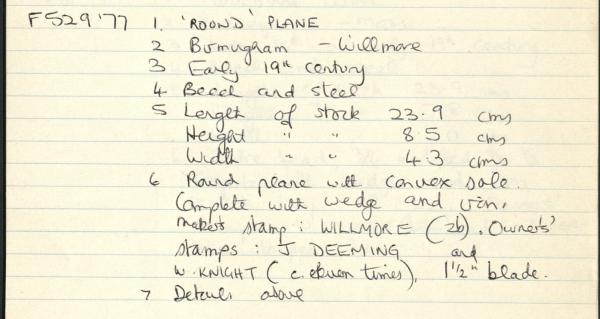 F529'77 1. 'ROUND' PLANE
2 Birmingham - Willmore
3 Early 19th century
4 Beech and steel
5 Length of stock 23.9 cms
Height " " 8.5 cms
Width " " 4.3 cms
6 Round plane with convex sole.
Complete with wedge and iron.
makers stamp: WILLMORE (2b). Owners'
stamps: J DEEMING and
W. KNIGHT (c. eleven times), 1 1/2" blade.
7 Details above